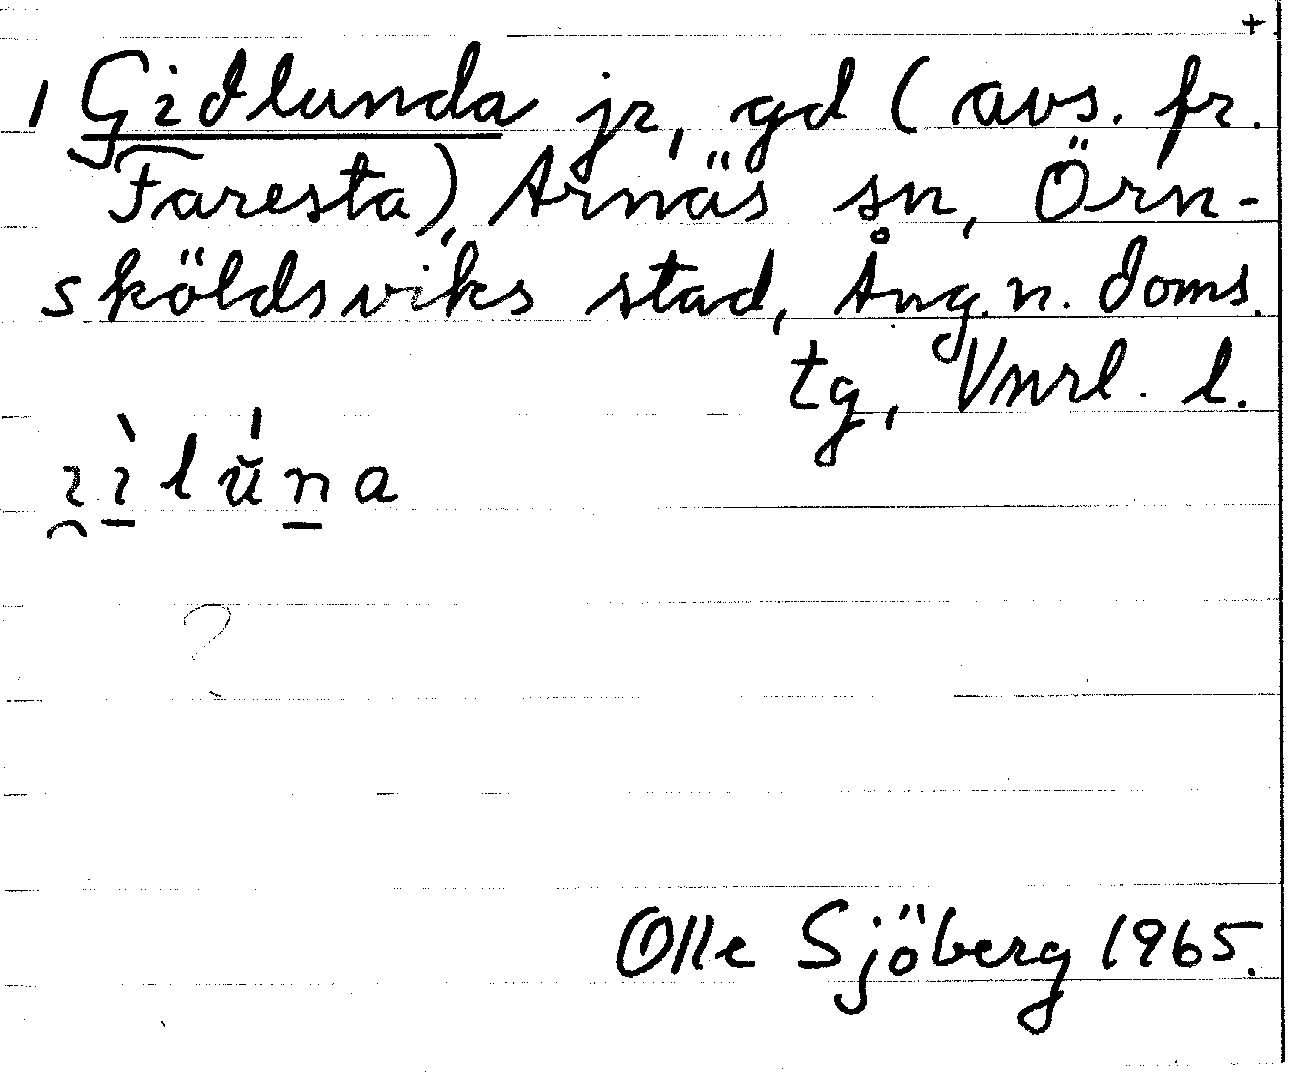 +
1 Gidlunda jr, gd (avs. fr.
Faresta), Arnäs sn, Örn-
sköldsviks stad, Ång. n. doms.
tg, Vnrl. l.
?
Olle Sjöberg 1965.